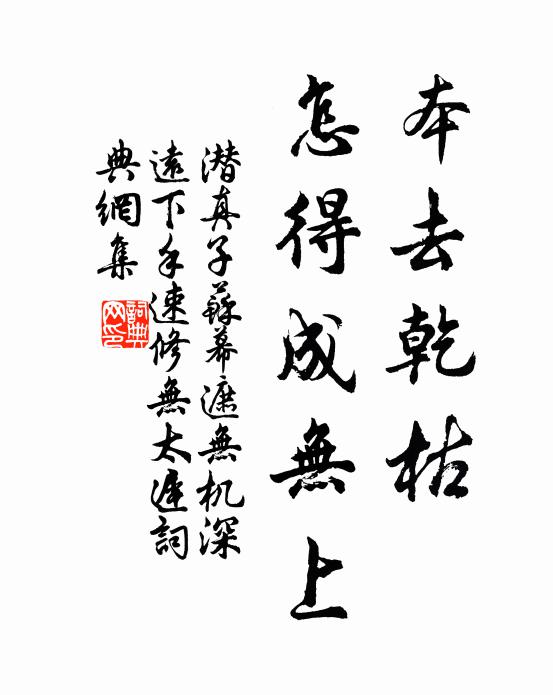 本去乾枯
怎得成無上
潜真子蘇幕遮無机深
遠下手速修無太遲詞
典網集
詞典
网印